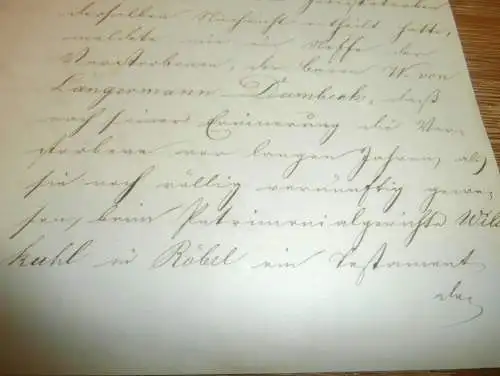 derselben Nachricht ertheilt hatte,
meldete mir ein Neffe der
Verstorbenen, der Herr W. von
Langermann Dambeck, daß
nach seiner Erinnerung die Ver-
storbene vor langen Jahren, als
sie noch völlig vernünftig gewe-
sen, beim Patrimonialgerichte Wild
kuhl in Röbel ein Testament